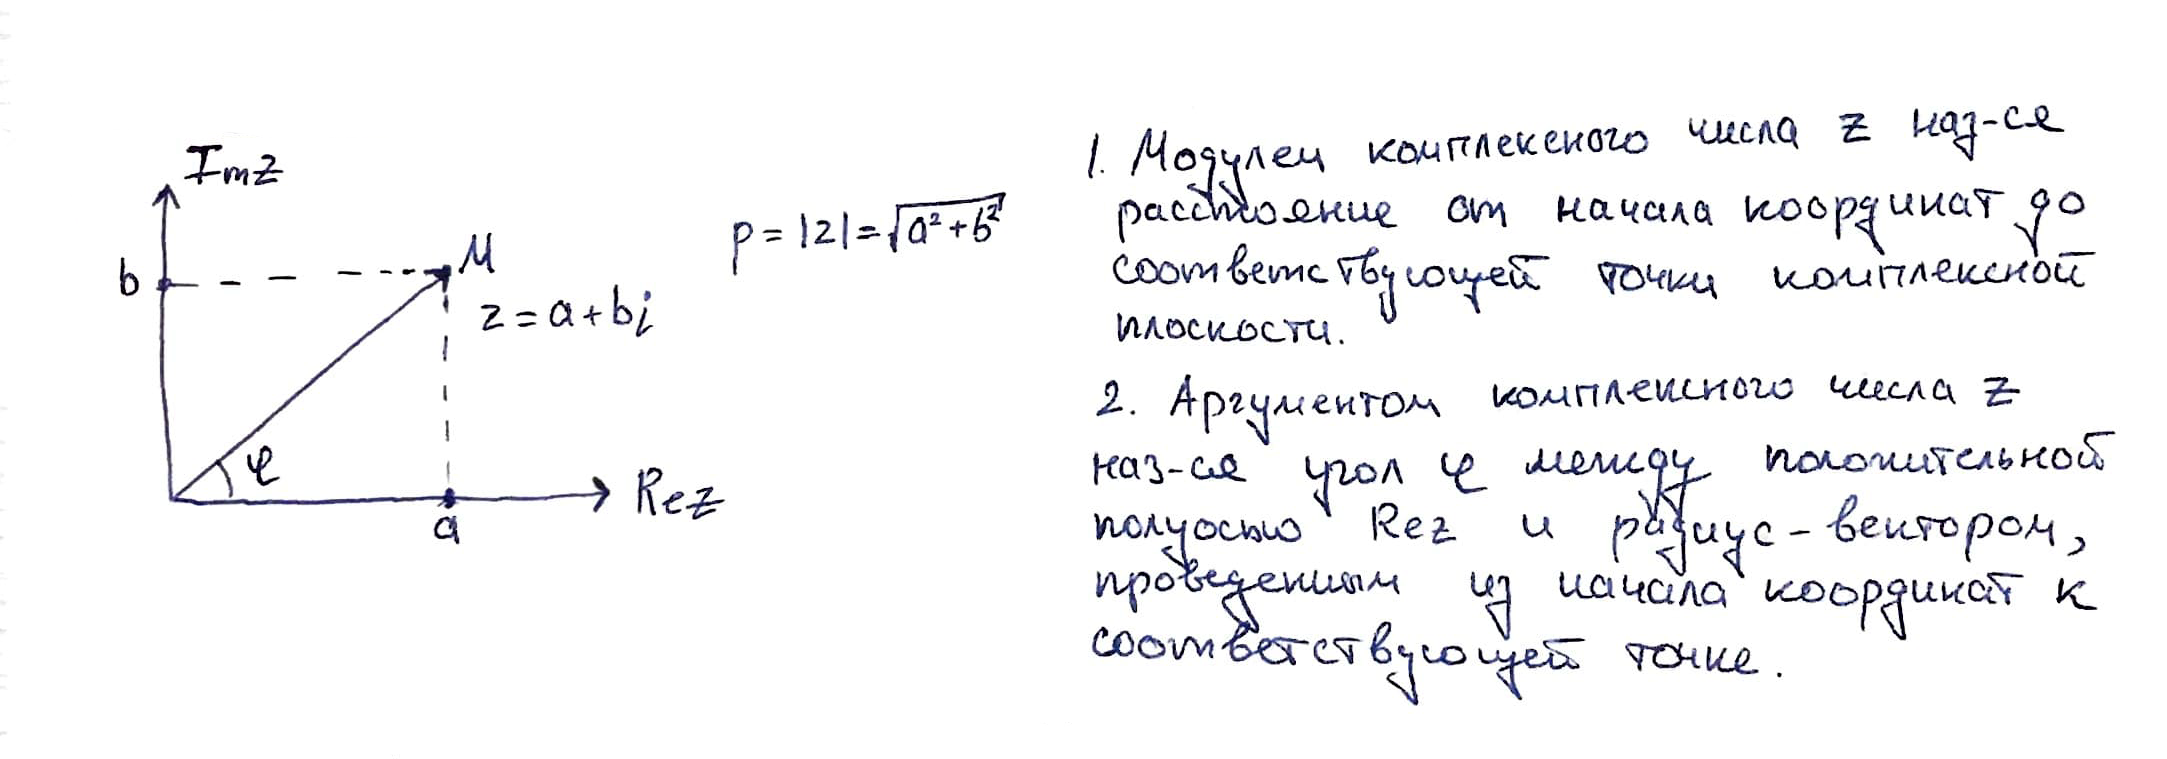 Imz
M
b
z=a+bi
φ
Rez
a
p=|z|=√a²+b²
1. Модулем комплексного числа z наз-ся
расстояние от начала координат до
соответствующей точки комплексной
плоскости.
2. Аргументом комплексного числа z
наз-ся угол φ между положительной
полуосью Rez и радиус-вектором,
проведенным из начала координат к
соответствующей точке.